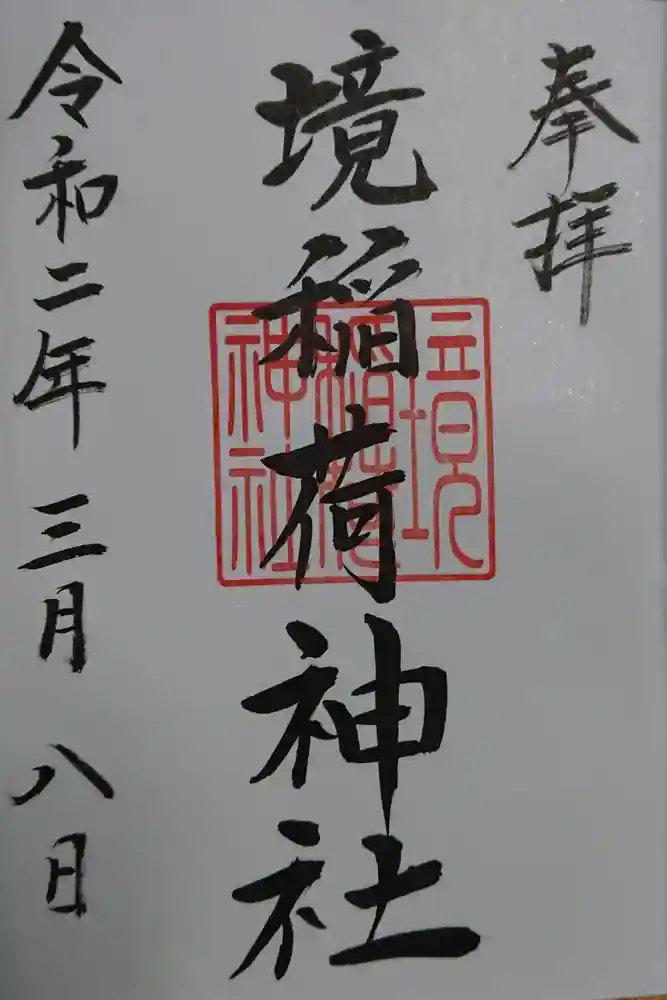 奉拝
境稲荷神社
境稲荷神社
令和二年三月八日